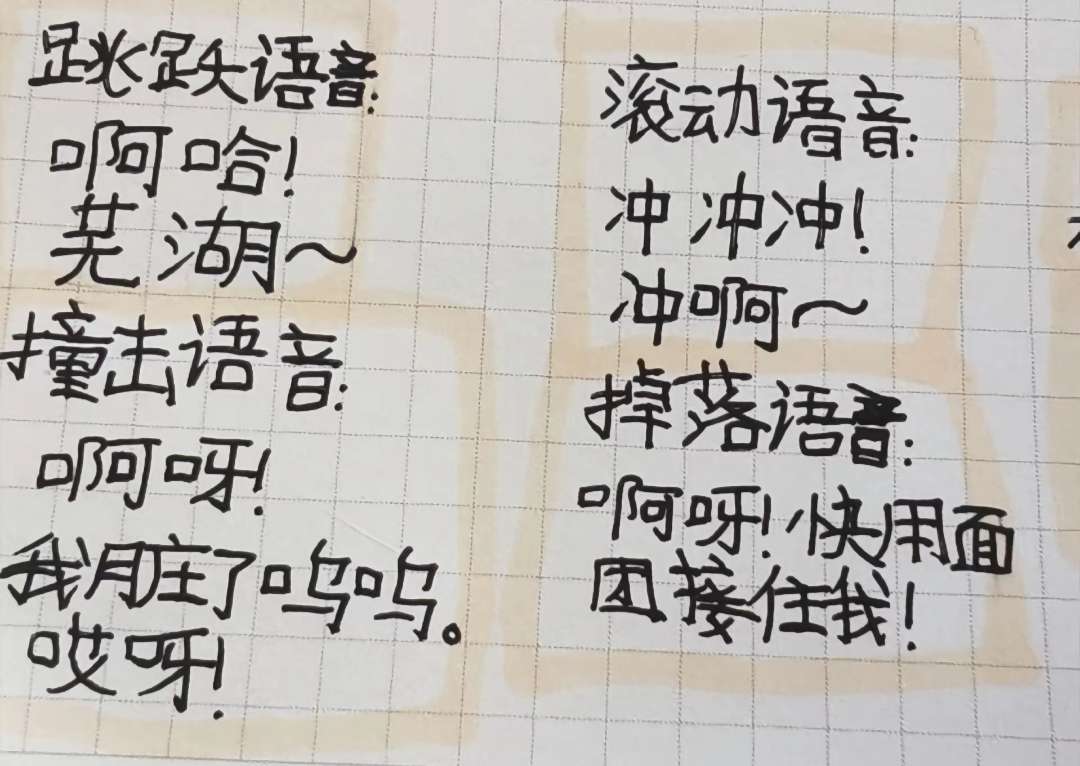 跳跃语音:
啊哈!
芜湖~
撞击语音:
啊呀!
我脏了呜呜。
哎呀!
滚动语音:
冲冲冲!
冲啊~
掉落语音:
啊呀!快用面
团接住我!